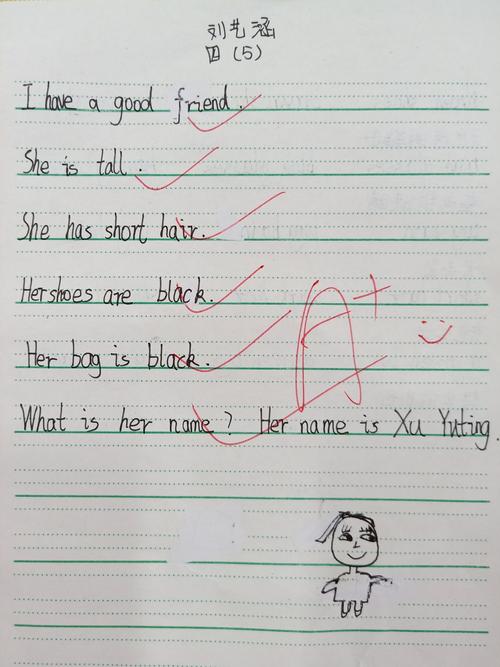 刘艺涵
四（5）
I have a good friend.
She is tall.
She has short hair.
Hershoes are black.
Her bag is black.
What is her name? Her name is Xu Yuting.
A+